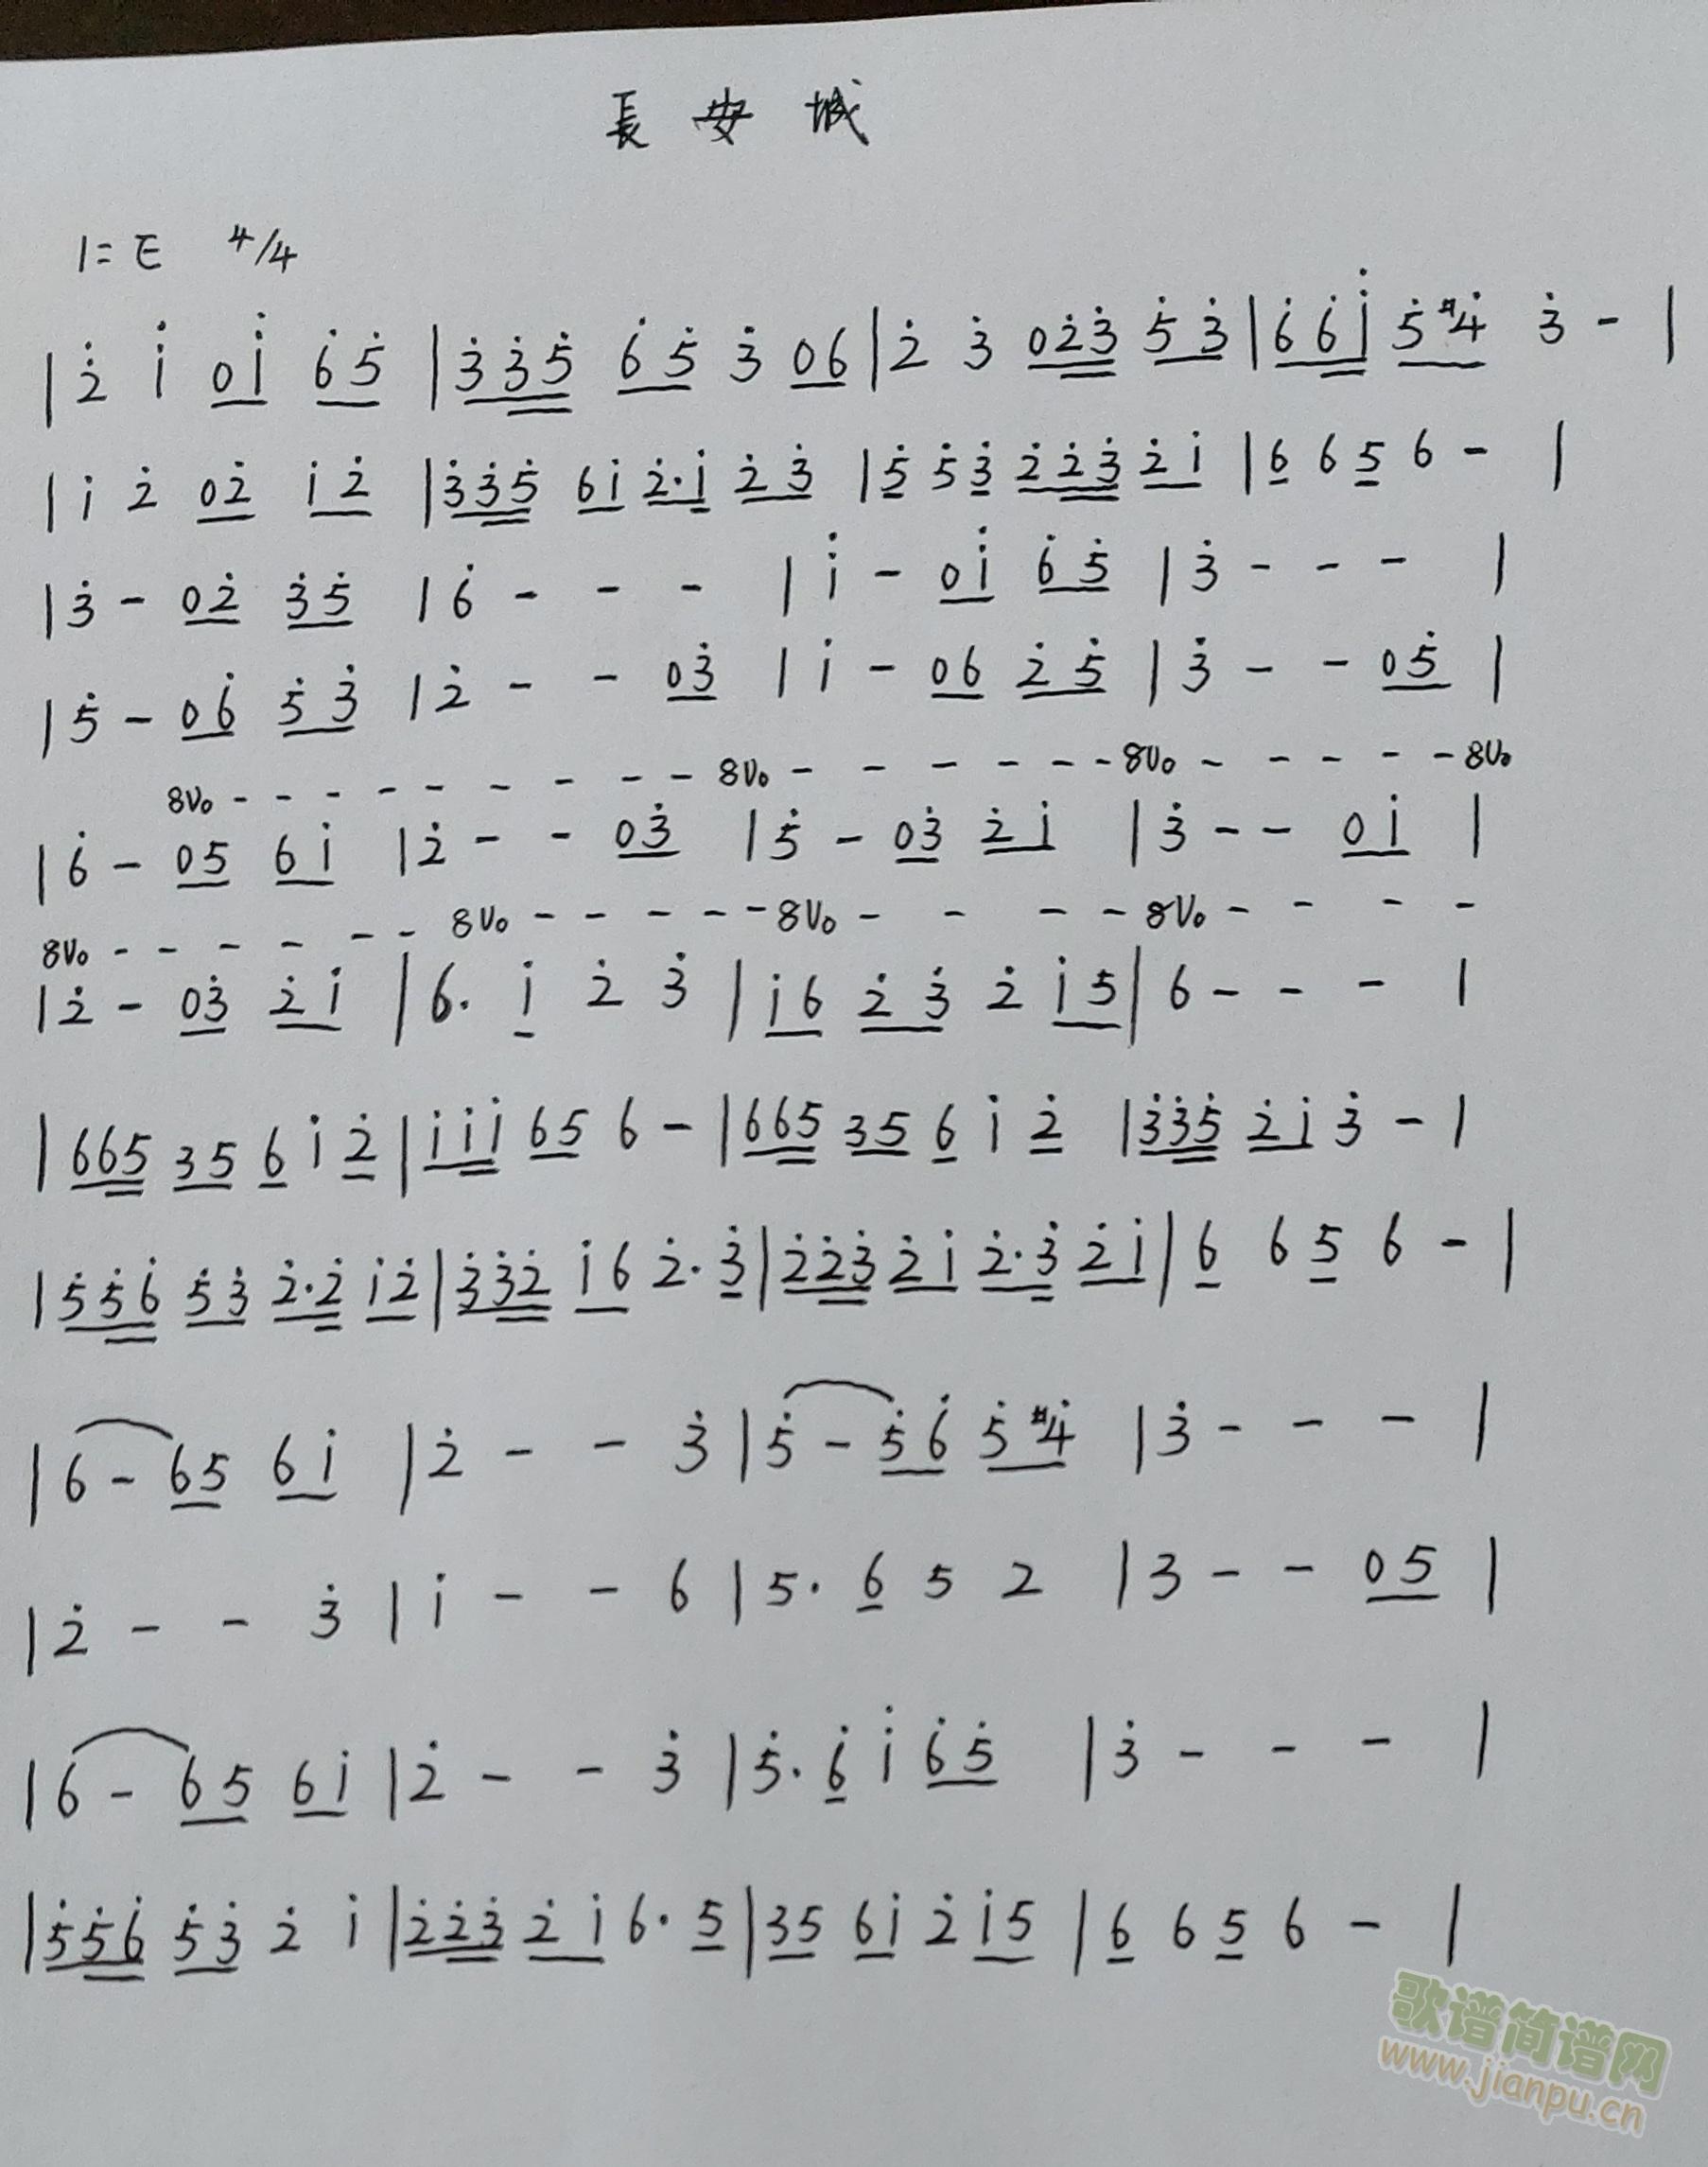 長安城
1=E 4/4
| 2̇ i̇ 0i̇ 6̇5̇ | 3̇3̇5̇ 6̇5̇ 3̇ 06 | 2̇ 3̇ 02̇3̇ 5̇3̇ | 6̇6̇i̇ 5̇#4̇ 3̇ - |
| i 2̇ 02̇ i2̇ | 3̇3̇5̇ 6i 2̇·i 2̇3̇ | 5̇ 5̇3̇ 2̇2̇3̇ 2̇i | 6 6 5 6 - |
| 3̇ - 02̇ 3̇5̇ | 6̇ - - - | i̇ - 0i̇ 6̇5̇ | 3̇ - - - |
| 5̇ - 06̇ 5̇3̇ | 2̇ - - 03̇ | i - 06 2̇5̇ | 3̇ - - 05̇ |
8vo - - - - - - - - 8vo - - - - - - 8vo - - - - - 8vo
| 6̇ - 05 6i | 2̇ - - 03̇ | 5̇ - 03̇ 2̇i | 3̇ - - 0i |
8vo - - - - - - 8vo - - - - - 8vo - - - - 8vo - - - -
| 2̇ - 03̇ 2̇i | 6· i 2̇ 3̇ | i6 2̇3̇ 2̇ i5 | 6 - - - |
| 665 35 6 i 2̇ | iii 65 6 - | 665 35 6 i 2̇ | 3̇3̇5̇ 2̇i 3̇ - |
| 5̇5̇6̇ 5̇3̇ 2̇·2̇ i2̇ | 3̇3̇2̇ i6 2̇· 3̇ | 2̇2̇3̇ 2̇i 2̇·3̇ 2̇i | 6 6 5 6 - |
| 6 - 65 6i | 2̇ - - 3̇ | 5̇ - 5̇6̇ 5̇#4̇ | 3̇ - - - |
| 2̇ - - 3̇ | i - - 6 | 5· 6 5 2 | 3 - - 05 |
| 6 - 65 6i | 2̇ - - 3̇ | 5̇· 6̇ i̇ 6̇5̇ | 3̇ - - - |
| 5̇5̇6̇ 5̇3̇ 2̇ i | 2̇2̇3̇ 2̇i 6· 5 | 35 6i 2̇ i5 | 6 6 5 6 - |
歌谱简谱网
www.jianpu.cn